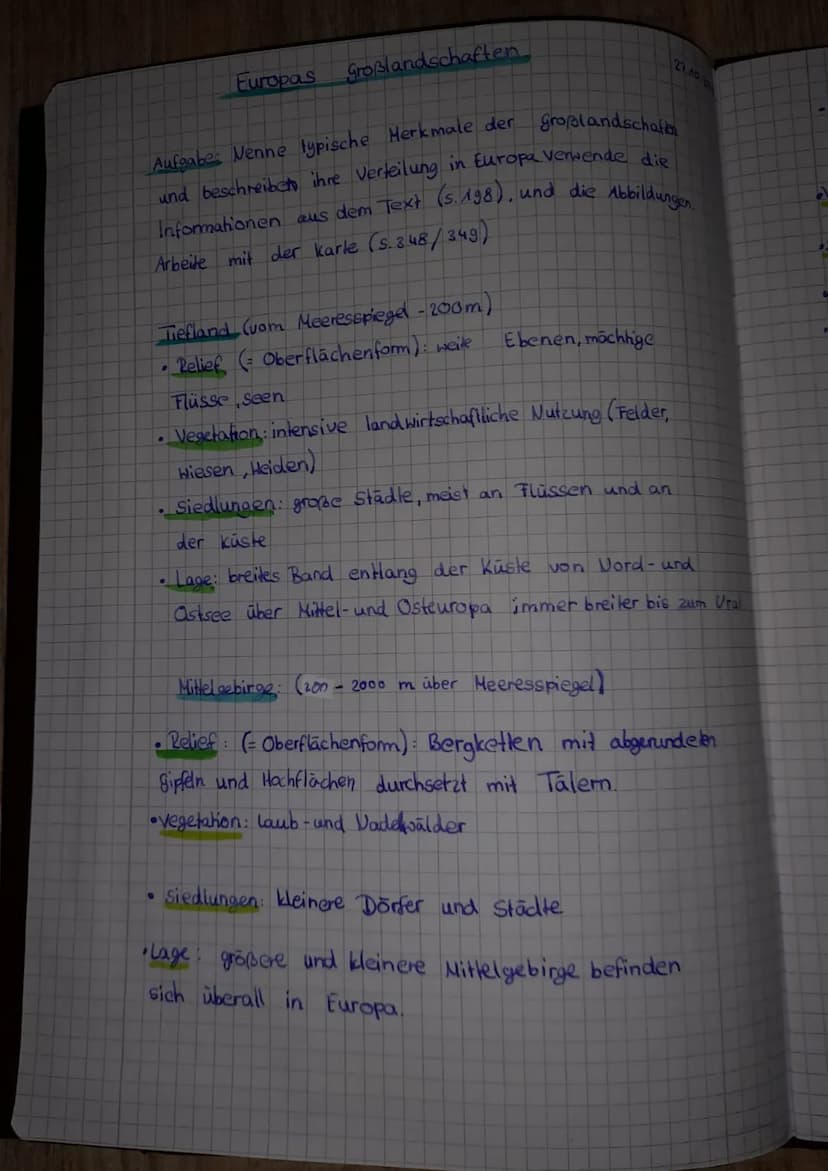 Europas Großlandschaften
27.10
Aufgabe: Nenne typische Merkmale der Großlandschaften
und beschreibe ihre Verteilung in Europa verwende die
Informationen aus dem Text (S.198), und die Abbildungen.
Arbeite mit der Karte (S.348/349)
Tiefland (vom Meeresspiegel - 200m)
• Relief (= Oberflächenform): weite Ebenen, mächtige
Flüsse, seen
• Vegetation: intensive landwirtschaftliche Nutzung (Felder,
Wiesen, Heiden)
• Siedlungen: große Städte, meist an Flüssen und an
der Küste
• Lage: breites Band entlang der Küste von Nord- und
Ostsee über Mittel- und Osteuropa immer breiter bis zum Ural
Mittelgebirge: (200 - 2000 m über Meeresspiegel)
• Relief: (= Oberflächenform): Bergketten mit abgerundeten
Gipfeln und Hochflächen durchsetzt mit Tälern.
• Vegetation: Laub- und Nadelwälder
• Siedlungen: kleinere Dörfer und Städte
• Lage: größere und kleinere Mittelgebirge befinden
sich überall in Europa.